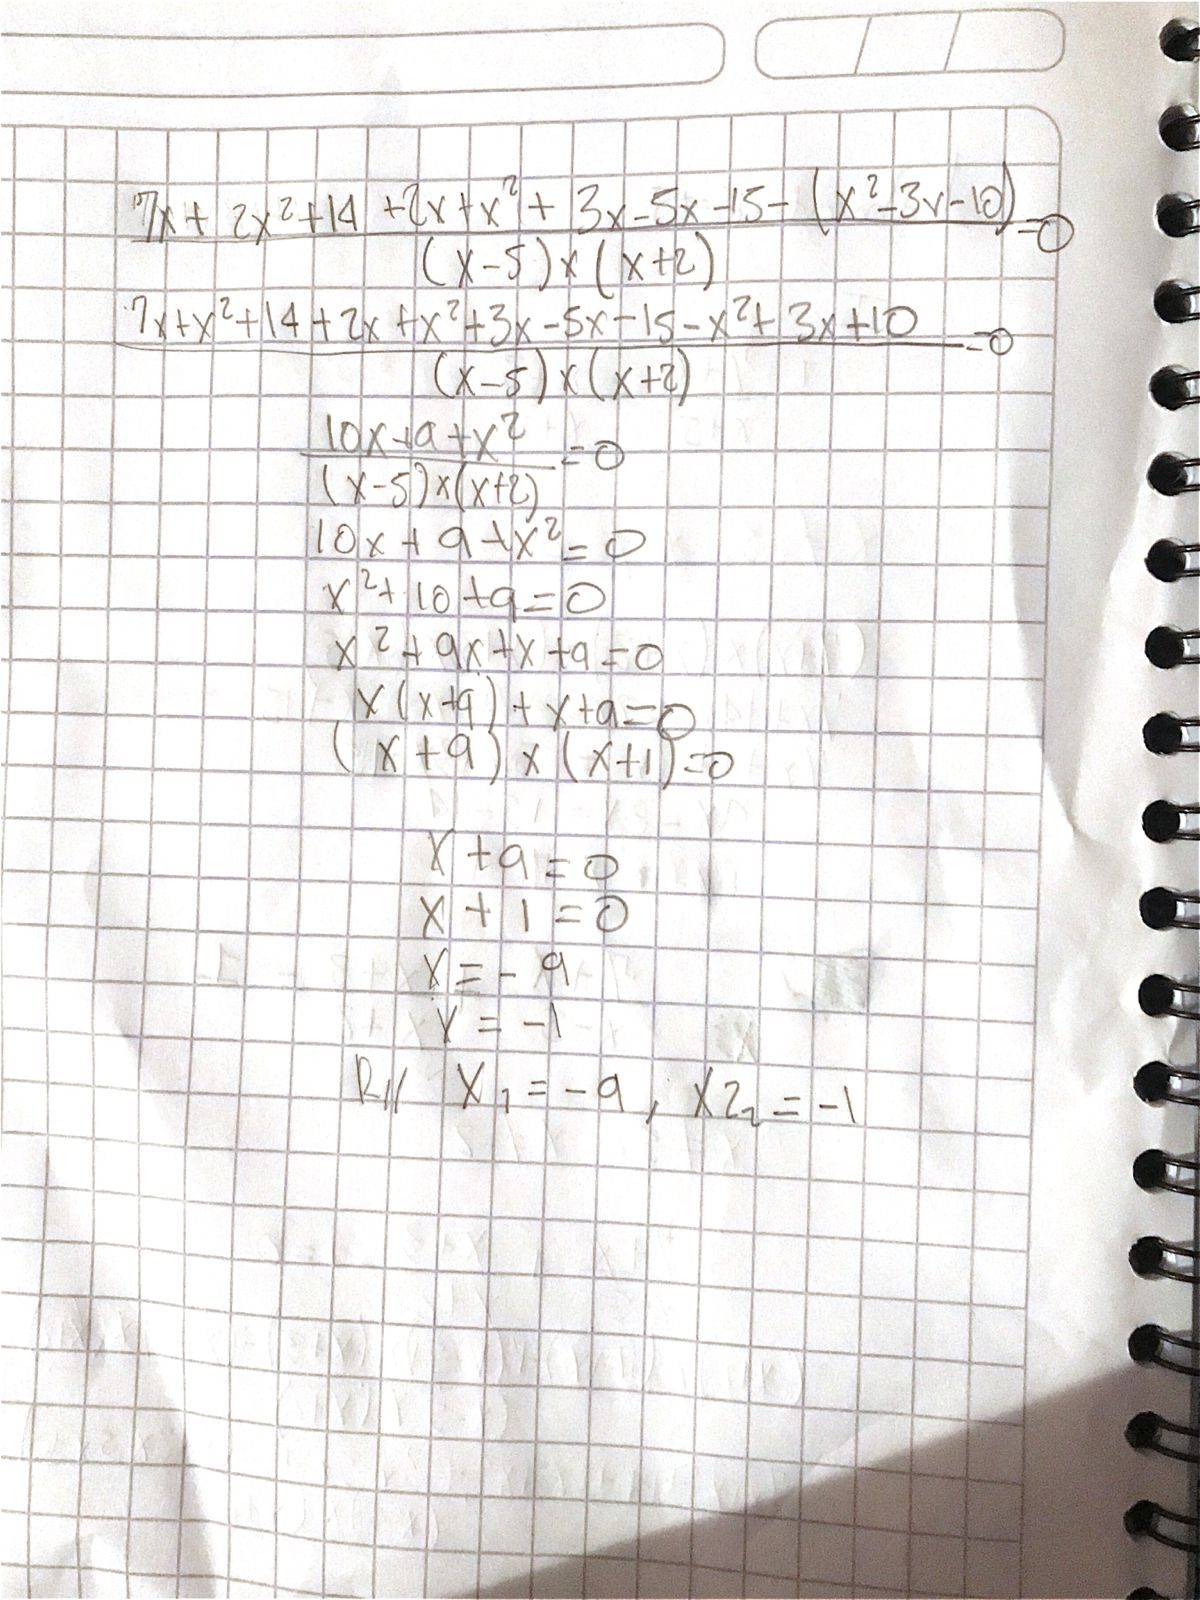 7x + 2x²+14 +2x+x² + 3x-5x-15- (x²-3x-10) =0
(x-5)x(x+2)
7x+x²+14+2x+x²+3x-5x-15-x²+3x+10 =0
(x-5)x(x+2)
10x+9+x² =0
(x-5)x(x+2)
10x+9+x²=0
x²+10+9=0
x²+9x+x+9=0
x(x+9)+x+9=0
(x+9)x(x+1)=0
x+9=0
x+1=0
x=-9
x=-1
R// x₁=-9, x2₂=-1